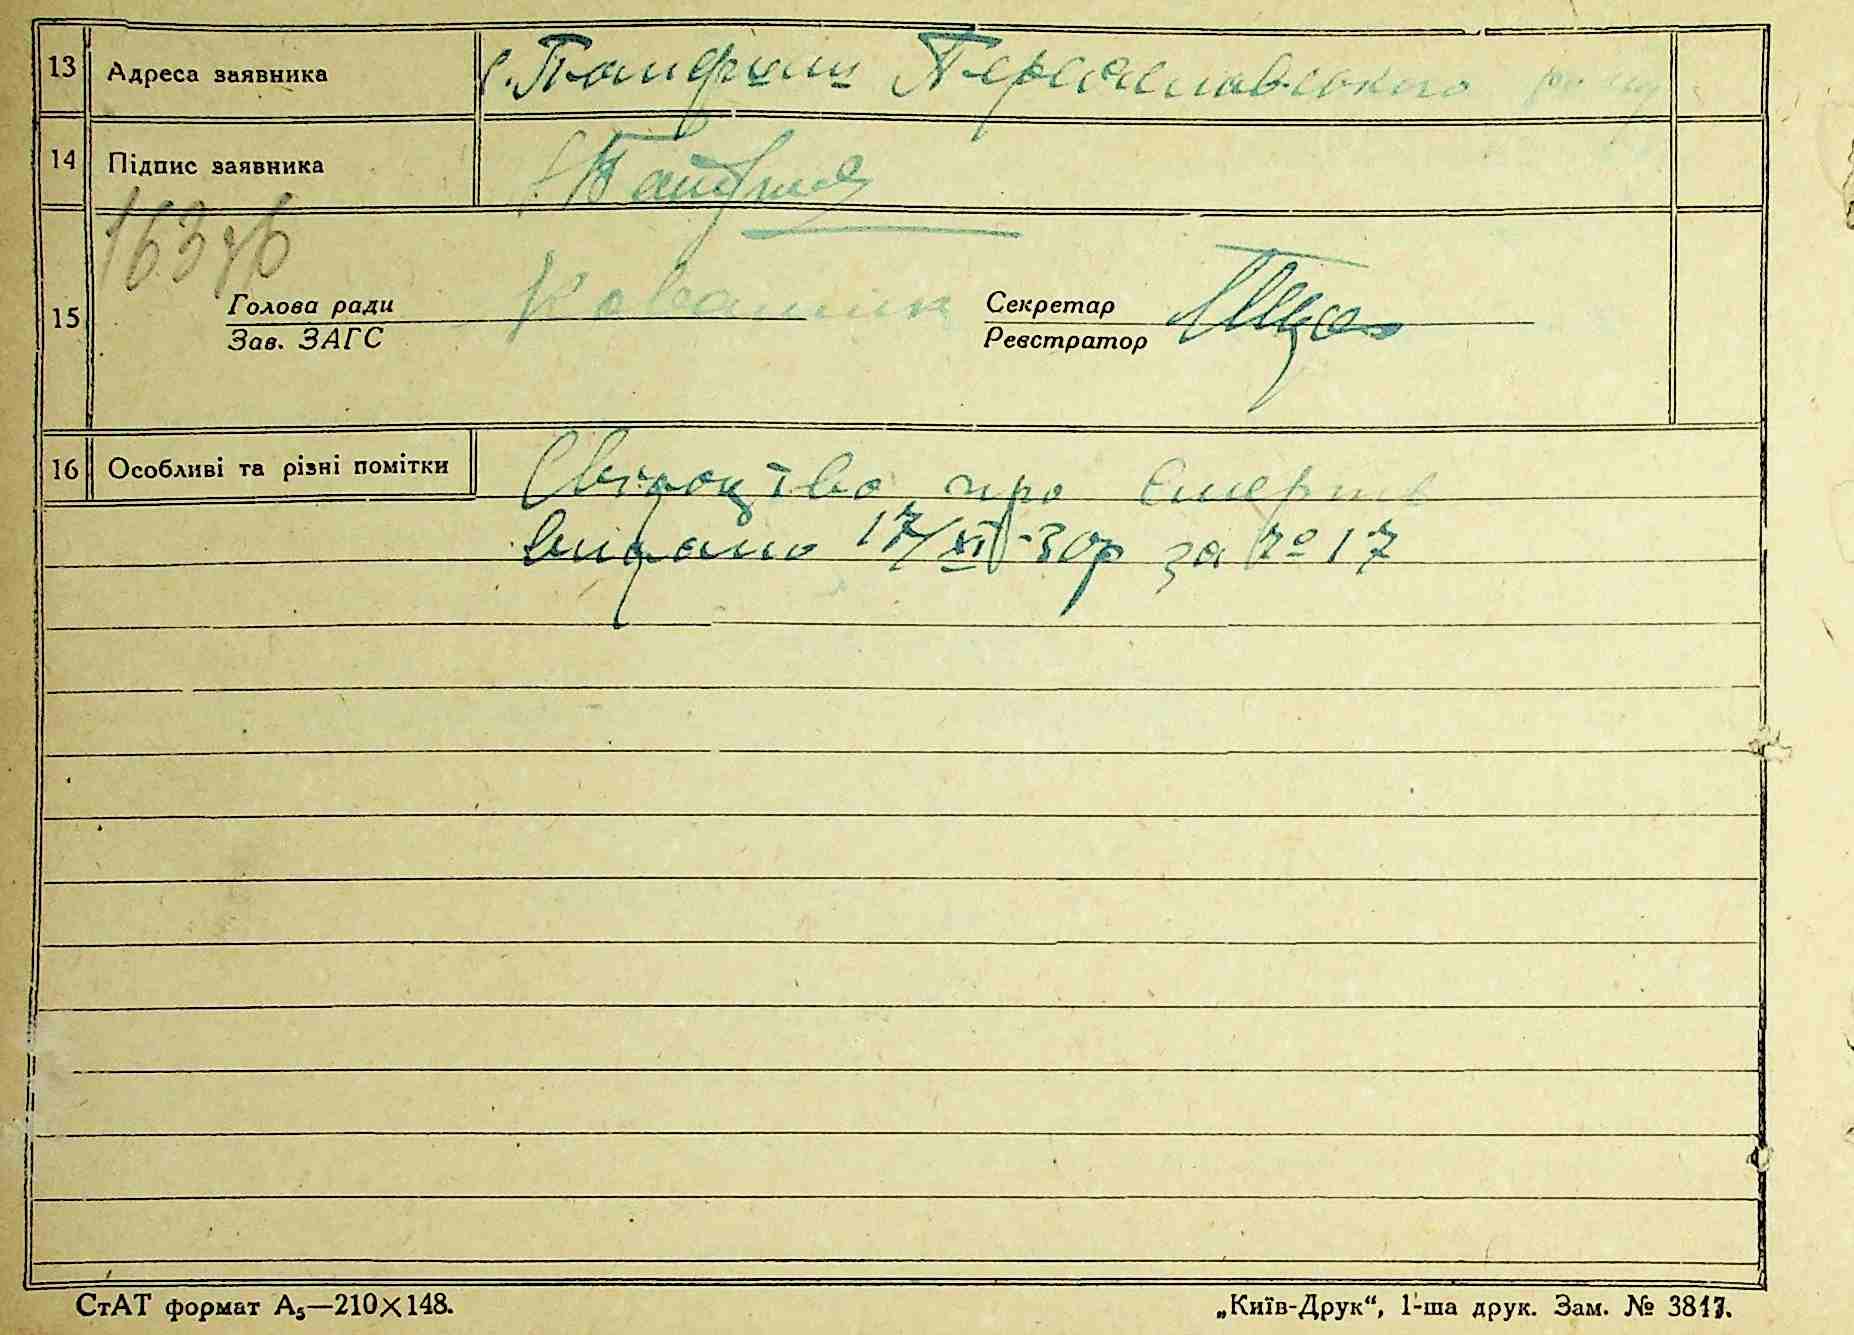 13 Адреса заявника с. Помфили Переяславського р-ну
14 Підпис заявника
163зб
15 Голова ради Секретар
Зав. ЗАГС Реєстратор
16 Особливі та різні помітки Свідоцтво про смерть
видано 17/XI-30р за № 17
СтАТ формат А₅—210×148. „Київ-Друк“, 1-ша друк. Зам. № 3817.